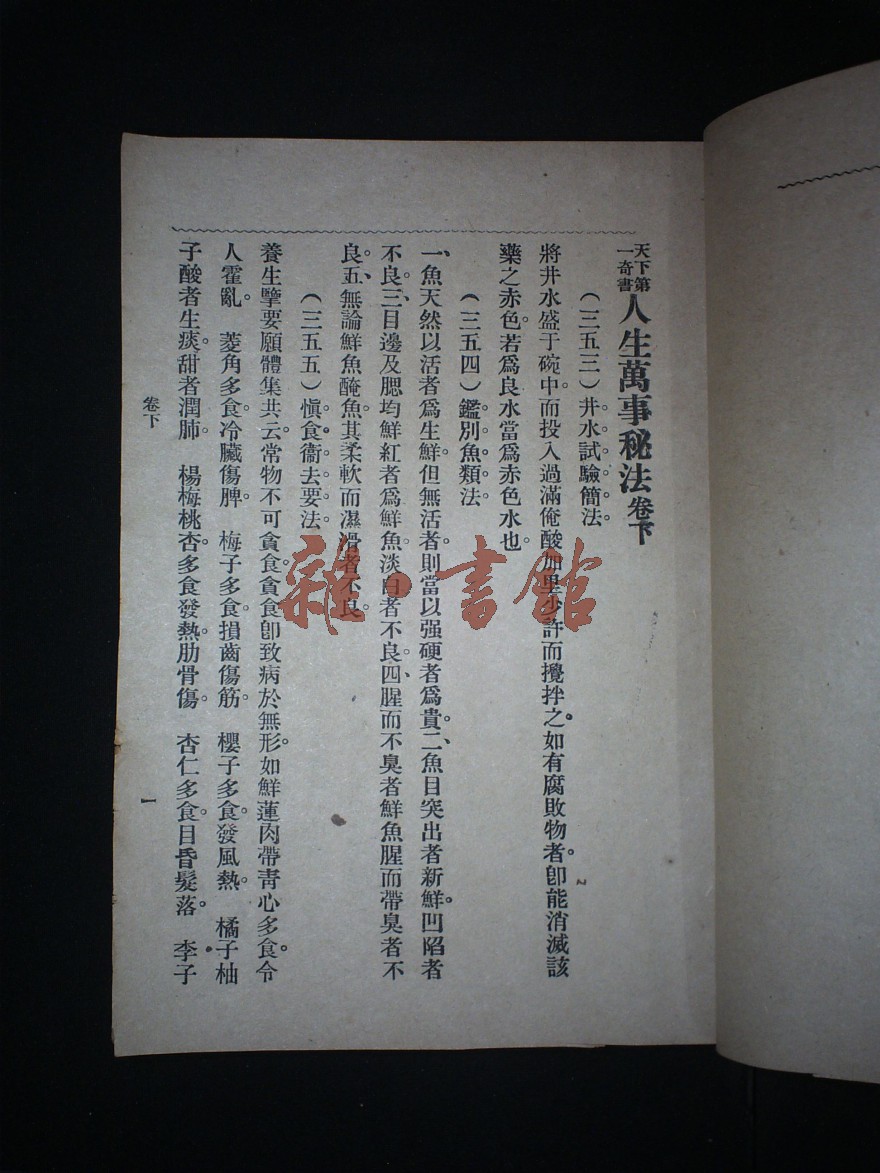 天下第一奇書 人生萬事秘法卷下
（三五三）井水試驗簡法。
將井水盛于碗中。而投入過滿俺酸加里少許而攪拌之。如有腐敗物者。卽能消滅該
藥之赤色。若爲良水當爲赤色水也。
（三五四）鑑別魚類法。
一、魚天然以活者爲生鮮。但無活者。則當以强硬者爲貴。二、魚目突出者新鮮。凹陷者
不良。三、目邊及腮均鮮紅者爲鮮魚。淡白者不良。四、腥而不臭者鮮魚腥而帶臭者不
良。五、無論鮮魚醃魚。其柔軟而濕滑者不良。
（三五五）愼食衞去要法。
養生擥要願體集共云。常物不可貪食。貪食卽致病於無形。如鮮蓮肉帶靑心多食。令
人霍亂。 菱角多食。冷臟傷脾。 梅子多食。損齒傷筋。 櫻子多食。發風熱。 橘子柚
子酸者生痰。甜者潤肺。 楊梅桃杏。多食發熱。肋骨傷。 杏仁多食。目昏髮落。 李子
卷下
一
雜·書館